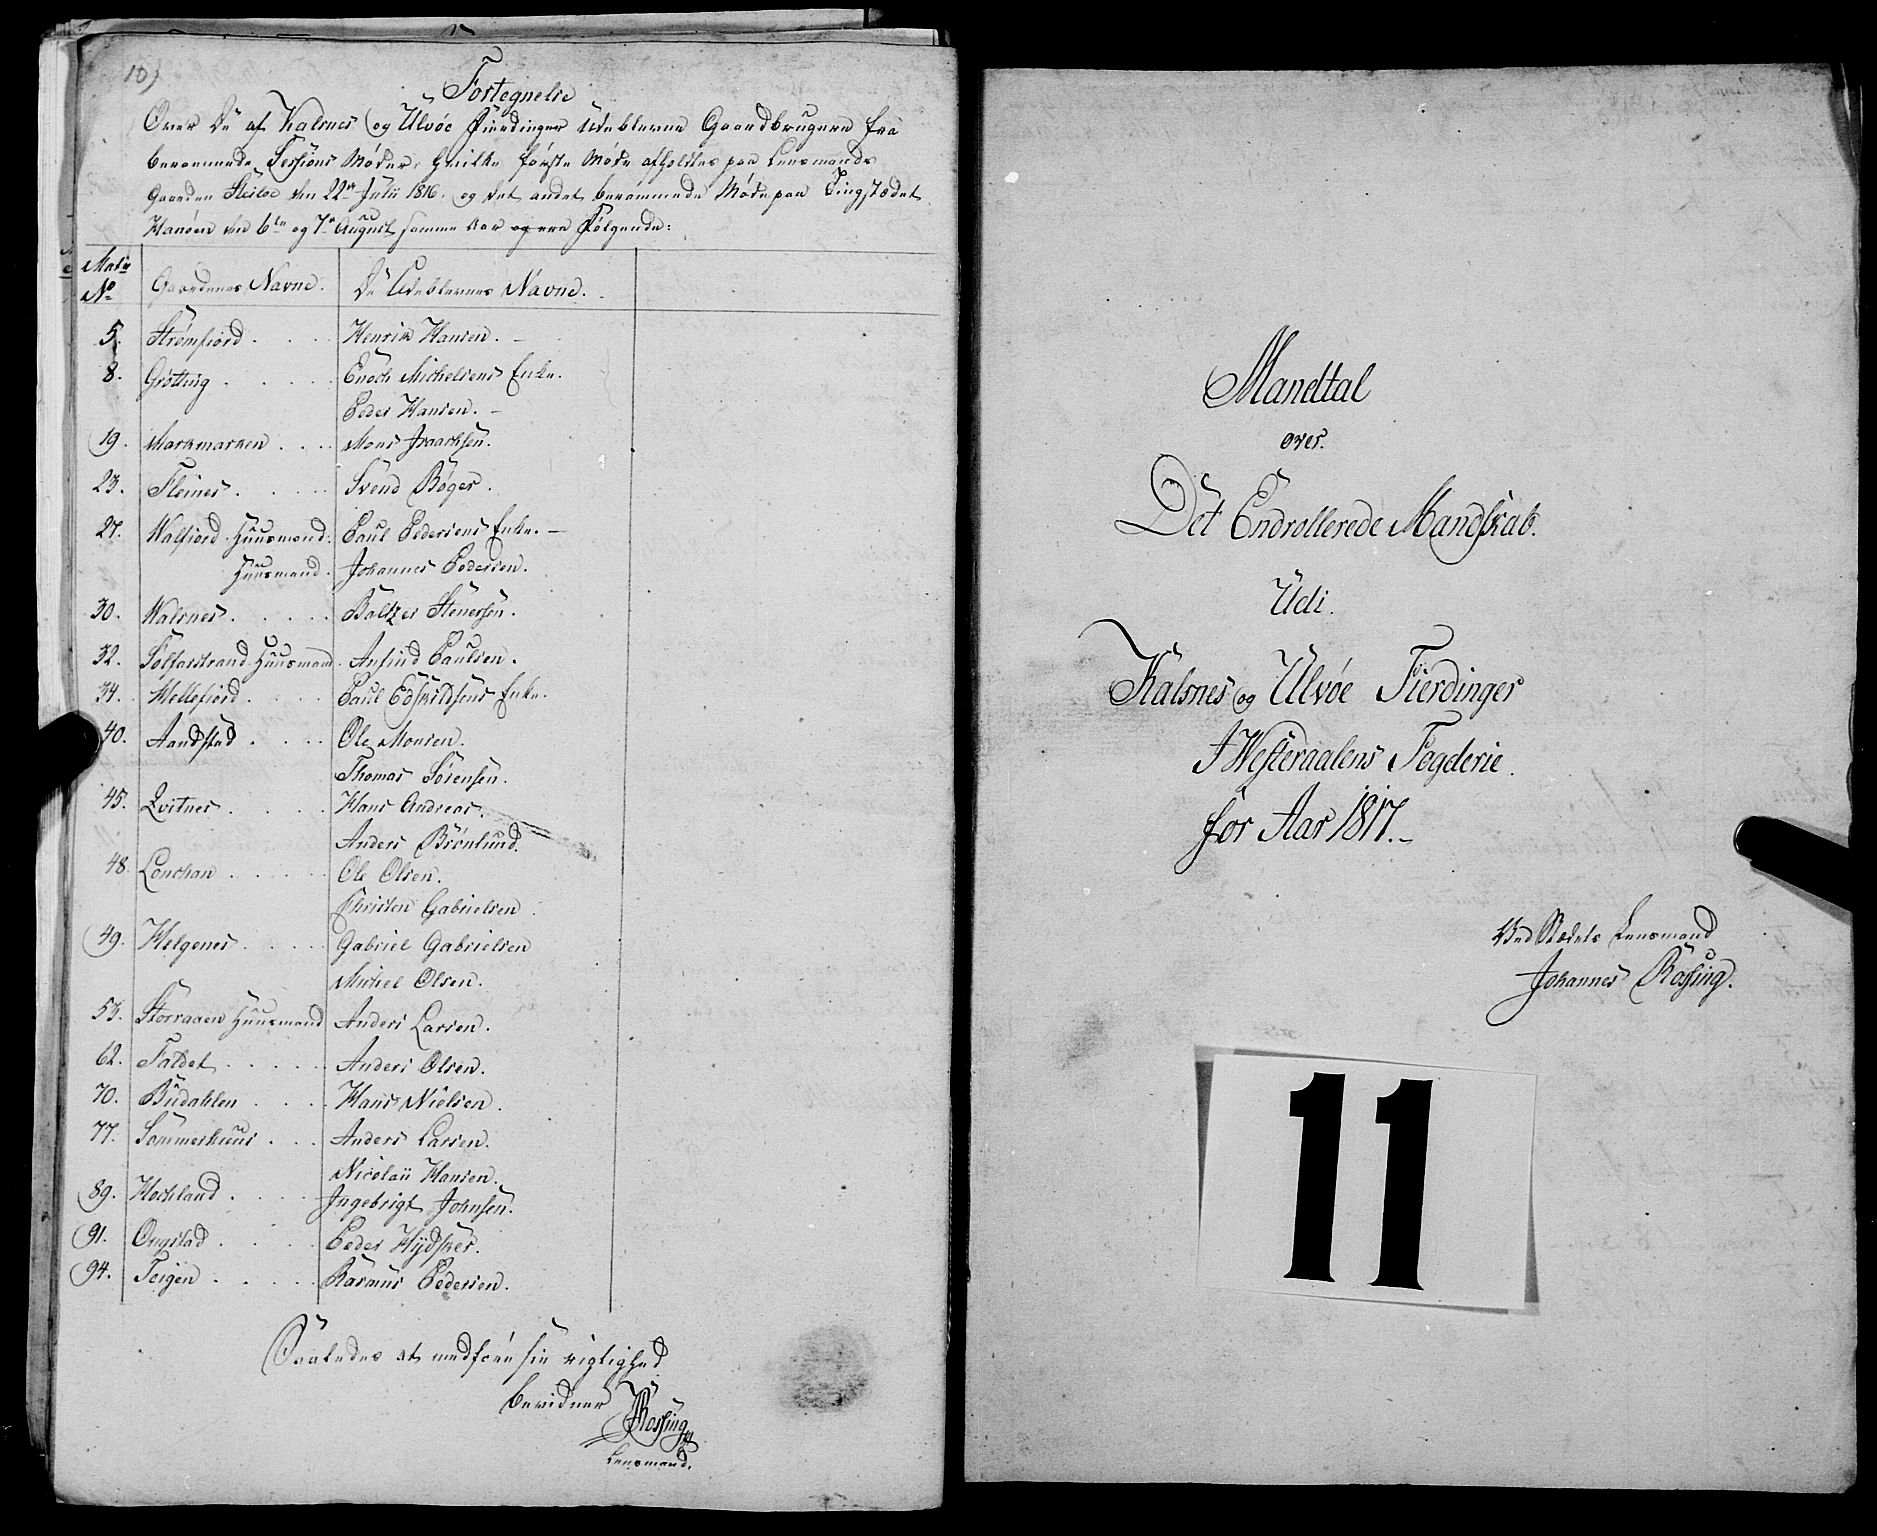 10)
Fortegnelse
Over De af Kalsnes og Ulvöe Fierdinger Udeblevne Gaardbrugere fra
berammede Sessions Möder, hvilke förste Möde afholdtes paa Lensmands
Gaarden Steiloe den 22de Julii 1816. og det andet berammede Möde paa Tingstædet
Hanöen den 6te og 7de August samme Aar og ere Fölgende:
Matr No | Gaardenes Navne. | De Udeblevnes Navne.
5. Strömfiord . . . Henrik Hansen. –
8. Grötting . . . . Enoch Michelsens Enke.
Peder Hansen. –
19. Markmarken . . . Mons Isaachsen.
23. Fleines . . . . Svend Böger.
27. Walfiord Huusmand: Paul Pedersens Enke. –
Huusmand. Johannes Pedersen.
30. Kalsnes . . . . Baltzer Stenersen.
32. Solfarstrand Huusmand. Anfind Paulsen.
34. Hellefiord . . . Paul Edskildsens Enke.
40. Aandstad . . . . Ole Monsen.
Thomas Sörensen.
45. Qvitnes . . . . Hans Andreas.
Anders Brönlund.
48. Lonchan . . . . Ole Olsen.
Christen Gabrielsen.
49. Helgenes . . . . Gabriel Gabrielsen
Michel Olsen.
53. Storraaen Huusmand Anders Larsen.
62. Faldet . . . . Anders Olsen.
70. Budahlen . . . Hans Nielsen.
77. Sommerhuus . . . Anders Larsen.
Nicolaii Hansen.
89. Hochland . . . . Ingebrigt Johnsen.
91. Ongstad . . . . Peder Hydsker.
94. Teigen . . . . Rasmus Pedersen.
Saaledes at medföre sin rigtighed
bevidner JRossing
Lensmand.
Mandtal
over.
Det Endrollerede Mandskab.
Udi.
Kalsnes og Ulvöe Fierdinger
I Westeraalens Fogderie.
for Aar 1817. –
Ved Stedets Lensmand
Johannes Rossing.
11